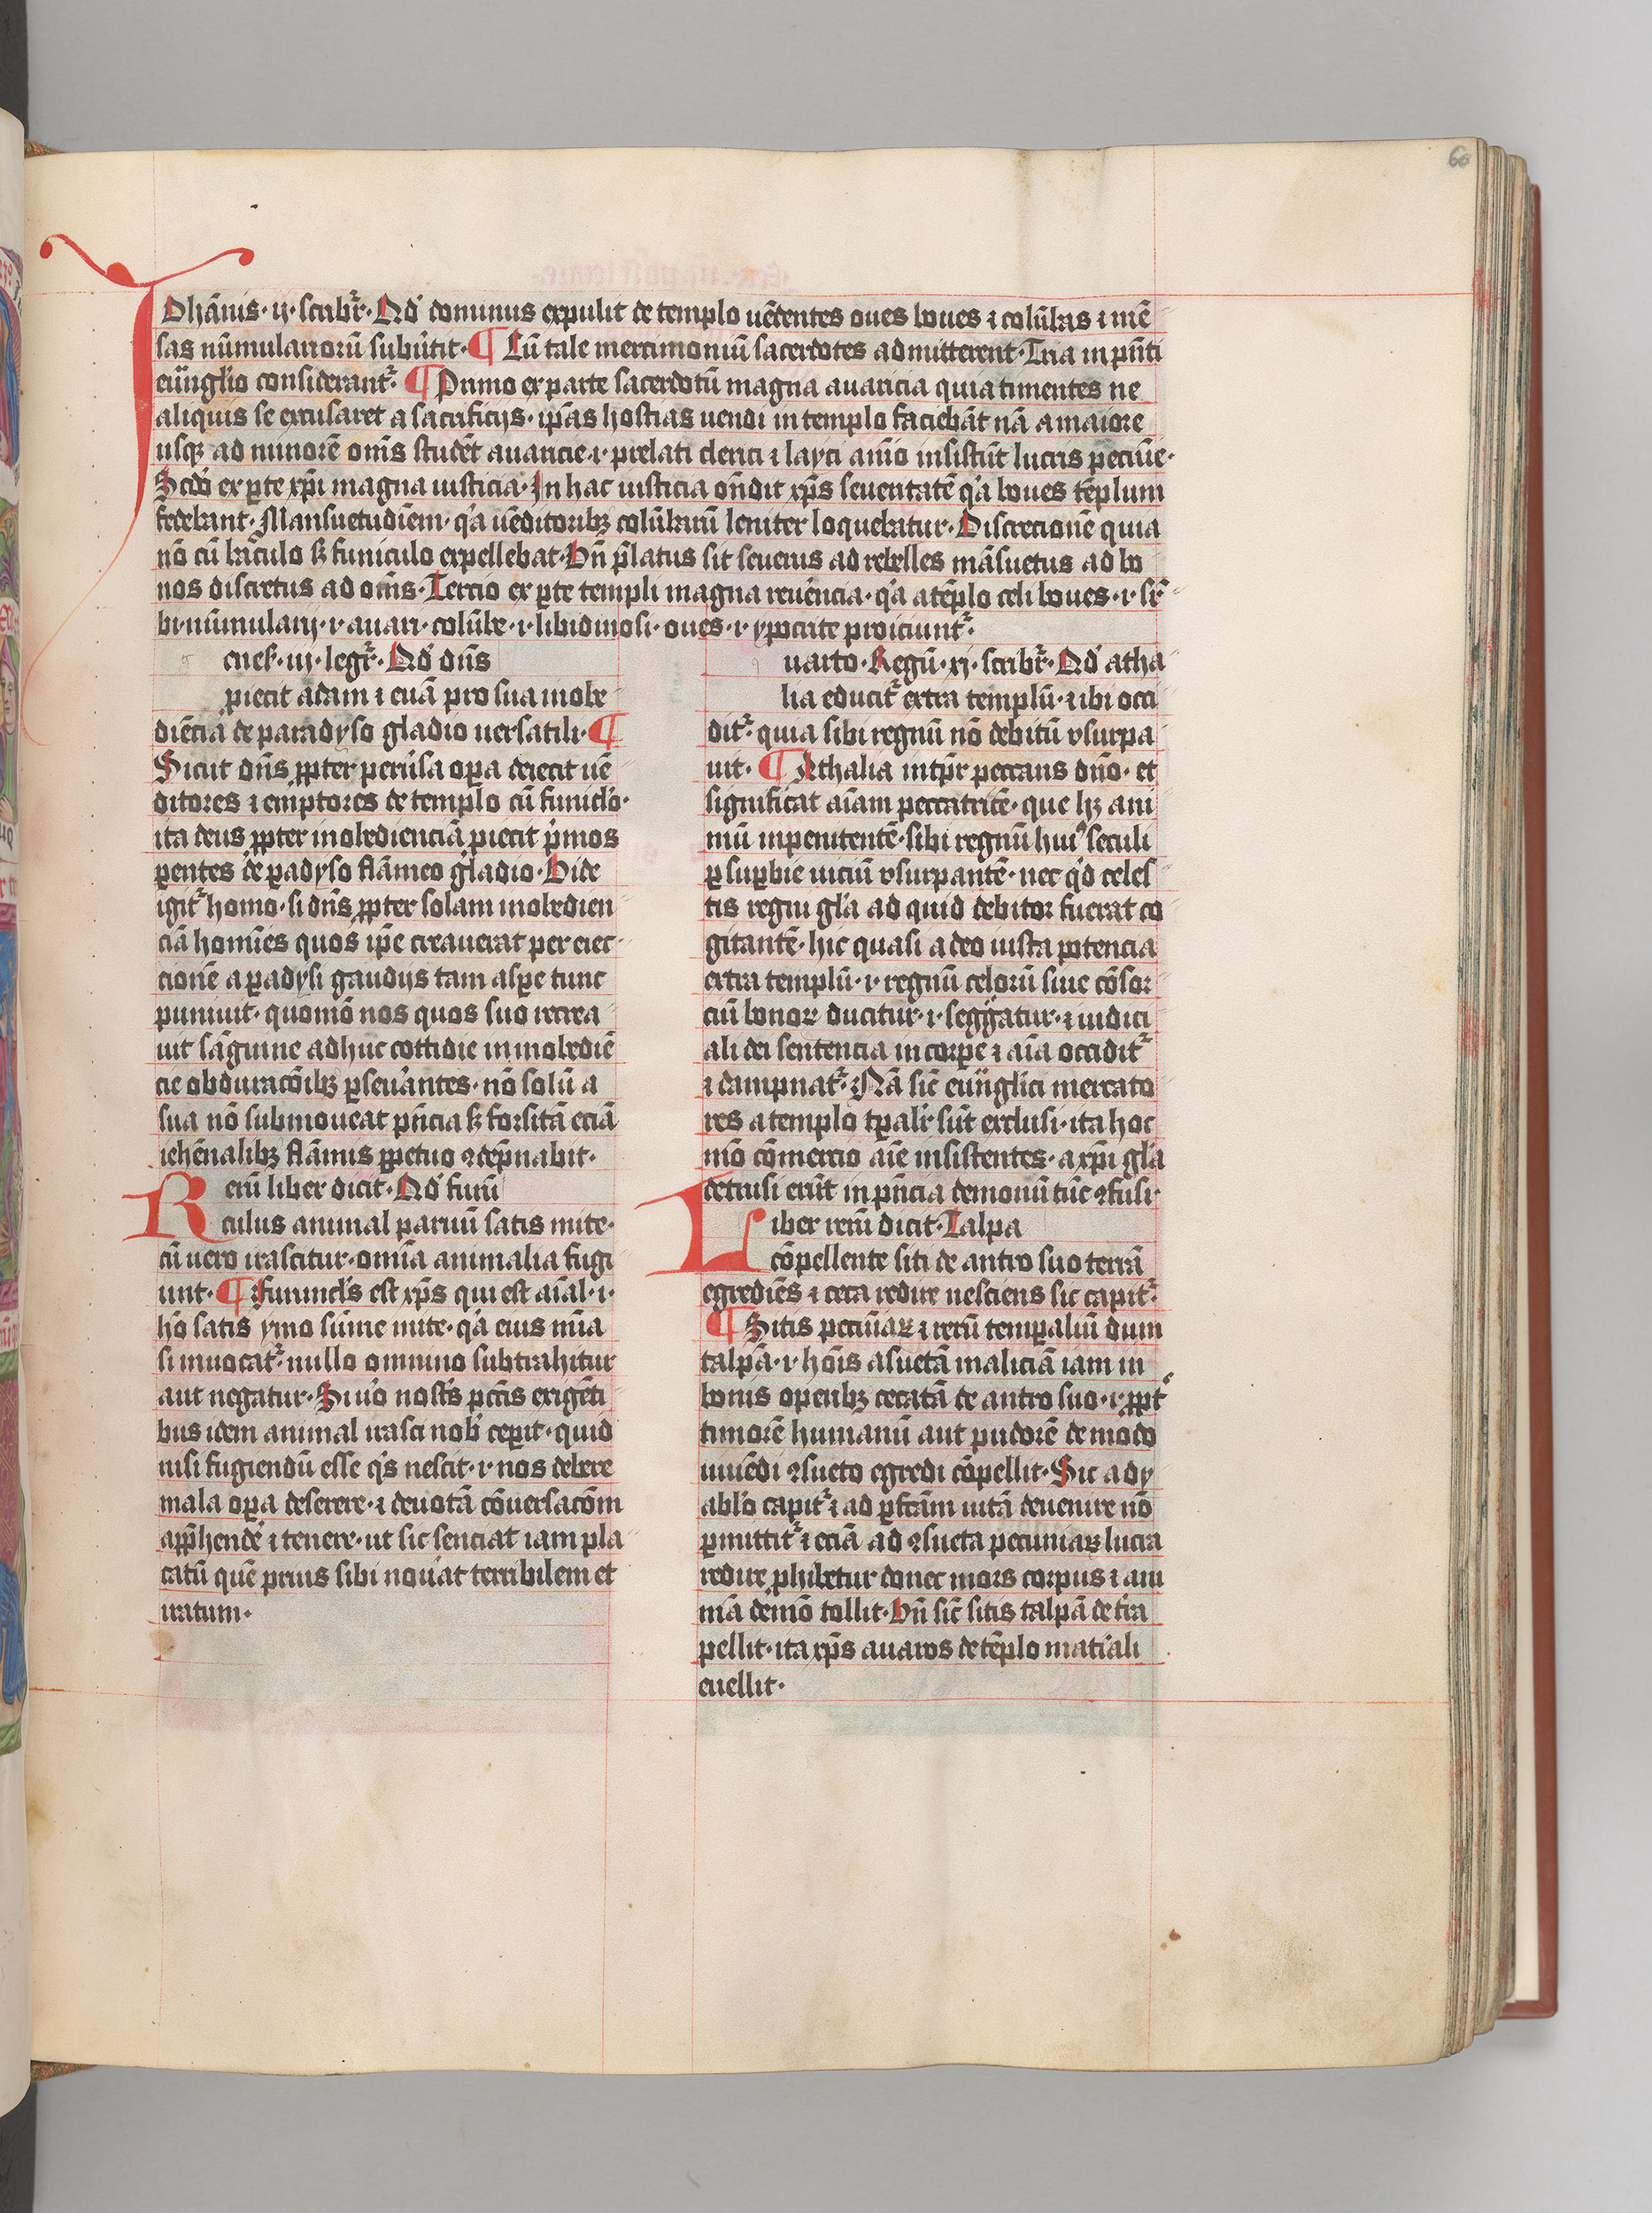 60
Johānis · ij · scribr̄ · Qd' dominus expulit de templo uēdentes oues boues ⁊ colūbas ⁊ mē
sas nūmularioꝛū subūtit · ¶ Cū tale mercimoniū sacerdotes admitterent · Tria in pn̄ti
euūglio considerant᷑ · ¶ Primo ex parte sacerdotū magna auaricia quia timentes ne
aliquis se excusaret a sacrificijs · ip̄as hostias uendi in templo faciebāt nā a maioꝛe
usqꝫ ad minoꝛē om̄s studēt auaricie · ⁊ prelati clerici ⁊ layci aīo insistūt lucris pecūie ·
Scdo ex ꝑte xp̄i magna iusticia · In hac iusticia on̄dit xp̄s seueritatē q'a boues tēplum
fedebant · Mansuetudīem · q'a uēditoribꝫ colūbarū leniter loquebatur · Discrecionē quia
nō cū baculo sꝫ funiculo expellebat · Vn̄ p̄latus sit seuerus ad rebelles māsuetus ad bo
nos discretus ad om̄s · Tercio ex ꝑte templi magna reuēncia · q'a a tēplo celi boues · i · sꝑ
bi · nūmularij · i · auari · colūbe · i · libidinosi · oues · i · ypocrite proiciunt᷑ ·
enes̄ · iij · legr᷑ · Qd' dn̄s
ꝓiecit adam ⁊ euā pro sua inobe
diēcia de paradyso gladio uersatili · ¶
Sicut dn̄s ꝓpter peruersa oꝑa deiecit uē
ditoꝛes ⁊ emptoꝛes de templo cū funiclo ·
ita deus ꝓpter inobedienciā ꝓiecit p'mos
ꝑentes de ꝑadyso flāmeo gladio · Vide
igit᷑ homo · si dn̄s ꝓpter solam inobedien
ciā homīes quos ip̄e creauerat per eiec
cionē a ꝑadysi gaudijs tam asꝑe tunc
puniuit · quomō nos quos suo recrea
uit sāguine adhuc cottidie in inobediē
cie obduracōibꝫ ꝑseuerantes · nō solū a
sua nō submoueat pn̄cia sꝫ foꝛsitā eciā
iehēnalibꝫ flāmis ꝑpetuo ꝯdēpnabit ·
Rerū liber dicit · Qd' furū
culus animal paruū satis mite ·
cū uero irascitur · omīa animalia fugi
unt · ¶ Furunclꝰs est xp̄s qui est aīal · i ·
hō satis ymo sūme mite · q'a eius mīa
si inuocat᷑ · nullo omnino subtrahitur
aut negatur · Si uo nost's pctīs exigēti
bus idem animal irasci nob' ceꝑit · quid
nisi fugiendū esse q's nescit · i · nos debere
mala oꝑa deserere · ⁊ deuotā cōuersacōm
app̄hende' ⁊ tenere · ut sic senciat iam pla
catū quē prius sibi nouāt terribilem et
iratum ·
uarto · Regū · xj · scribr᷑ · Qd' atha
lia educit᷑ extra templū · ⁊ ibi occi
dit᷑ · quia sibi regnū nō debitū vsurpa
uit · ¶ Athalia intp̄r peccans dn̄o · et
significat aīam peccatricē · que hꝫ ani
mū inpenitentē · sibi regnū huiꝰ seculi
ꝑ suꝑbie uiciū vsurpantē · nec q'd celes
tis regni gl'a ad quid debitoꝛ fuerat co
gitantē · hic quasi a deo iusta potencia
extra templū · i · regnū celoꝛū siue cōsoꝛ
ciū bonoꝝ ducitur · i · seggatur · ⁊ iudici
ali dei sentencia in coꝛꝑe ⁊ aīa occidit᷑
⁊ dampnat᷑ · Nā sic̄ euūglici mercato
res a templo tꝑalr̄ sūt exclusi · ita hoc
mō cōmercio aīe insistentes · a xp̄i gl'a
detrusi erūt in pn̄cia demonū tūc ꝯfusi
Liber rerū dicit · Talpa
cōpellente siti de antro suo terrā
egrediēs ⁊ ceca redire nesciens sic capit᷑ ·
¶ Sitis pecūiaꝝ ⁊ rerū tempaliū dum
talpā · i · hoīs asuetā maliciā iam in
bonis opeibꝫ cecatā de antro suo · i · ꝓpt'
timoꝛē humanū aut pudoꝛē de modo
uiuēdi ꝯsueto egredi cōpellit · Sic a dy
ablo capit᷑ ⁊ ad ꝑfcām uitā deuenire nō
ꝑmittit᷑ ⁊ eciā ad ꝯsueta pecuniaꝝ lucra
redire ꝓhibetur donec moꝛs coꝛpus ⁊ ani
mā demō tollit · Vn̄ sic̄ sitis talpā de t'ra
pellit · ita xp̄s auaros de tēplo mat'iali
euellit ·